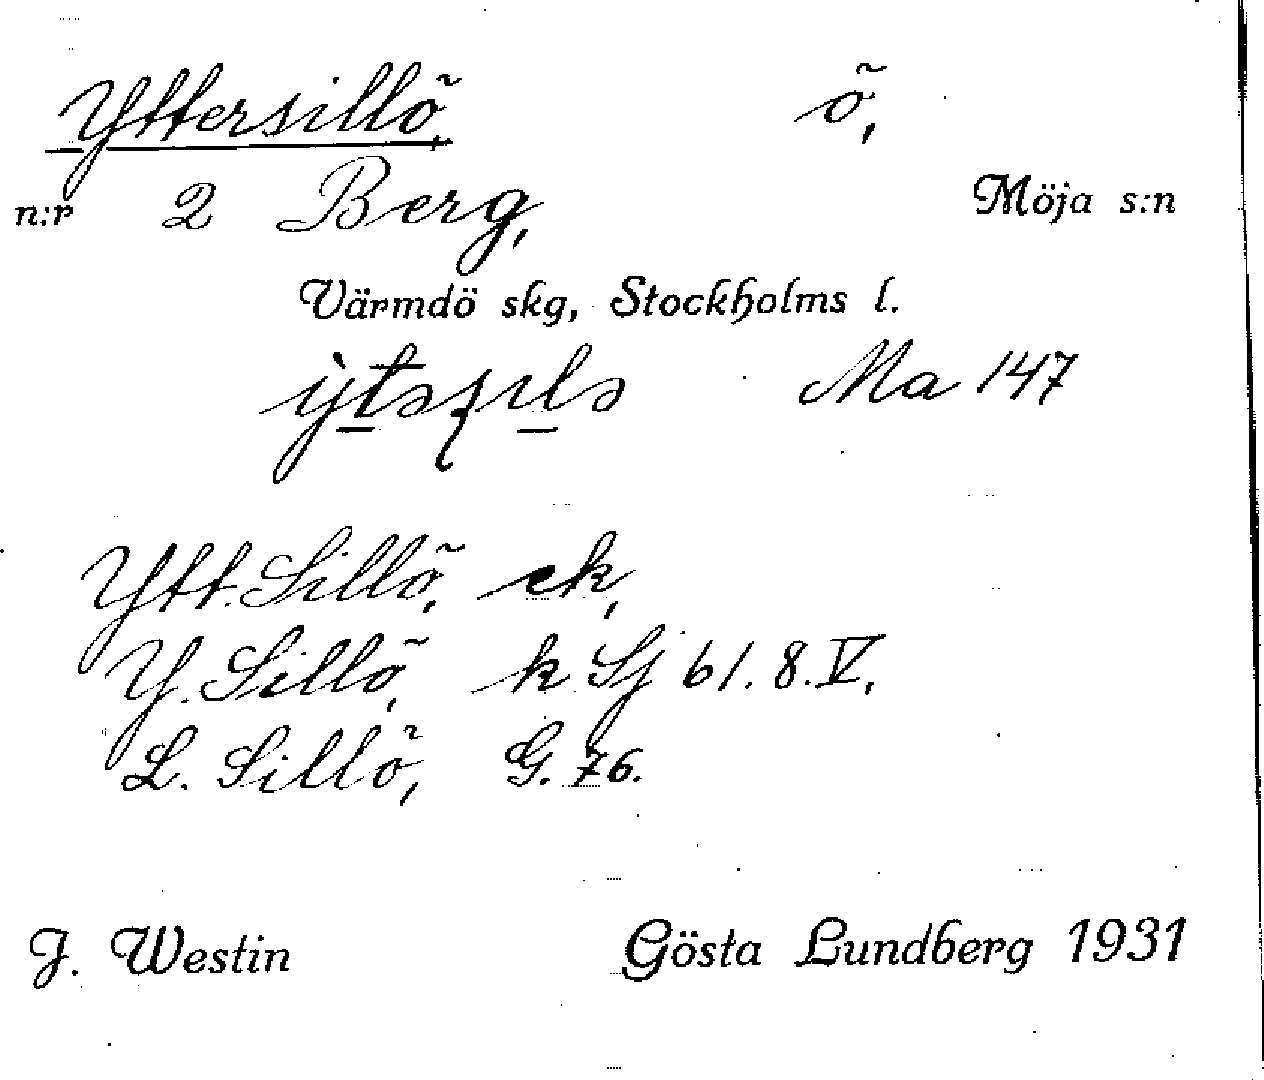 Yttersillö, ö,
n:r 2 Berg, Möja s:n
Värmdö skg, Stockholms l.
Ma 147
Ytt. Sillö, ek,
Y. Sillö, k Sj 61. 8. V,
L. Sillö, G. 76.
J. Westin Gösta Lundberg 1931